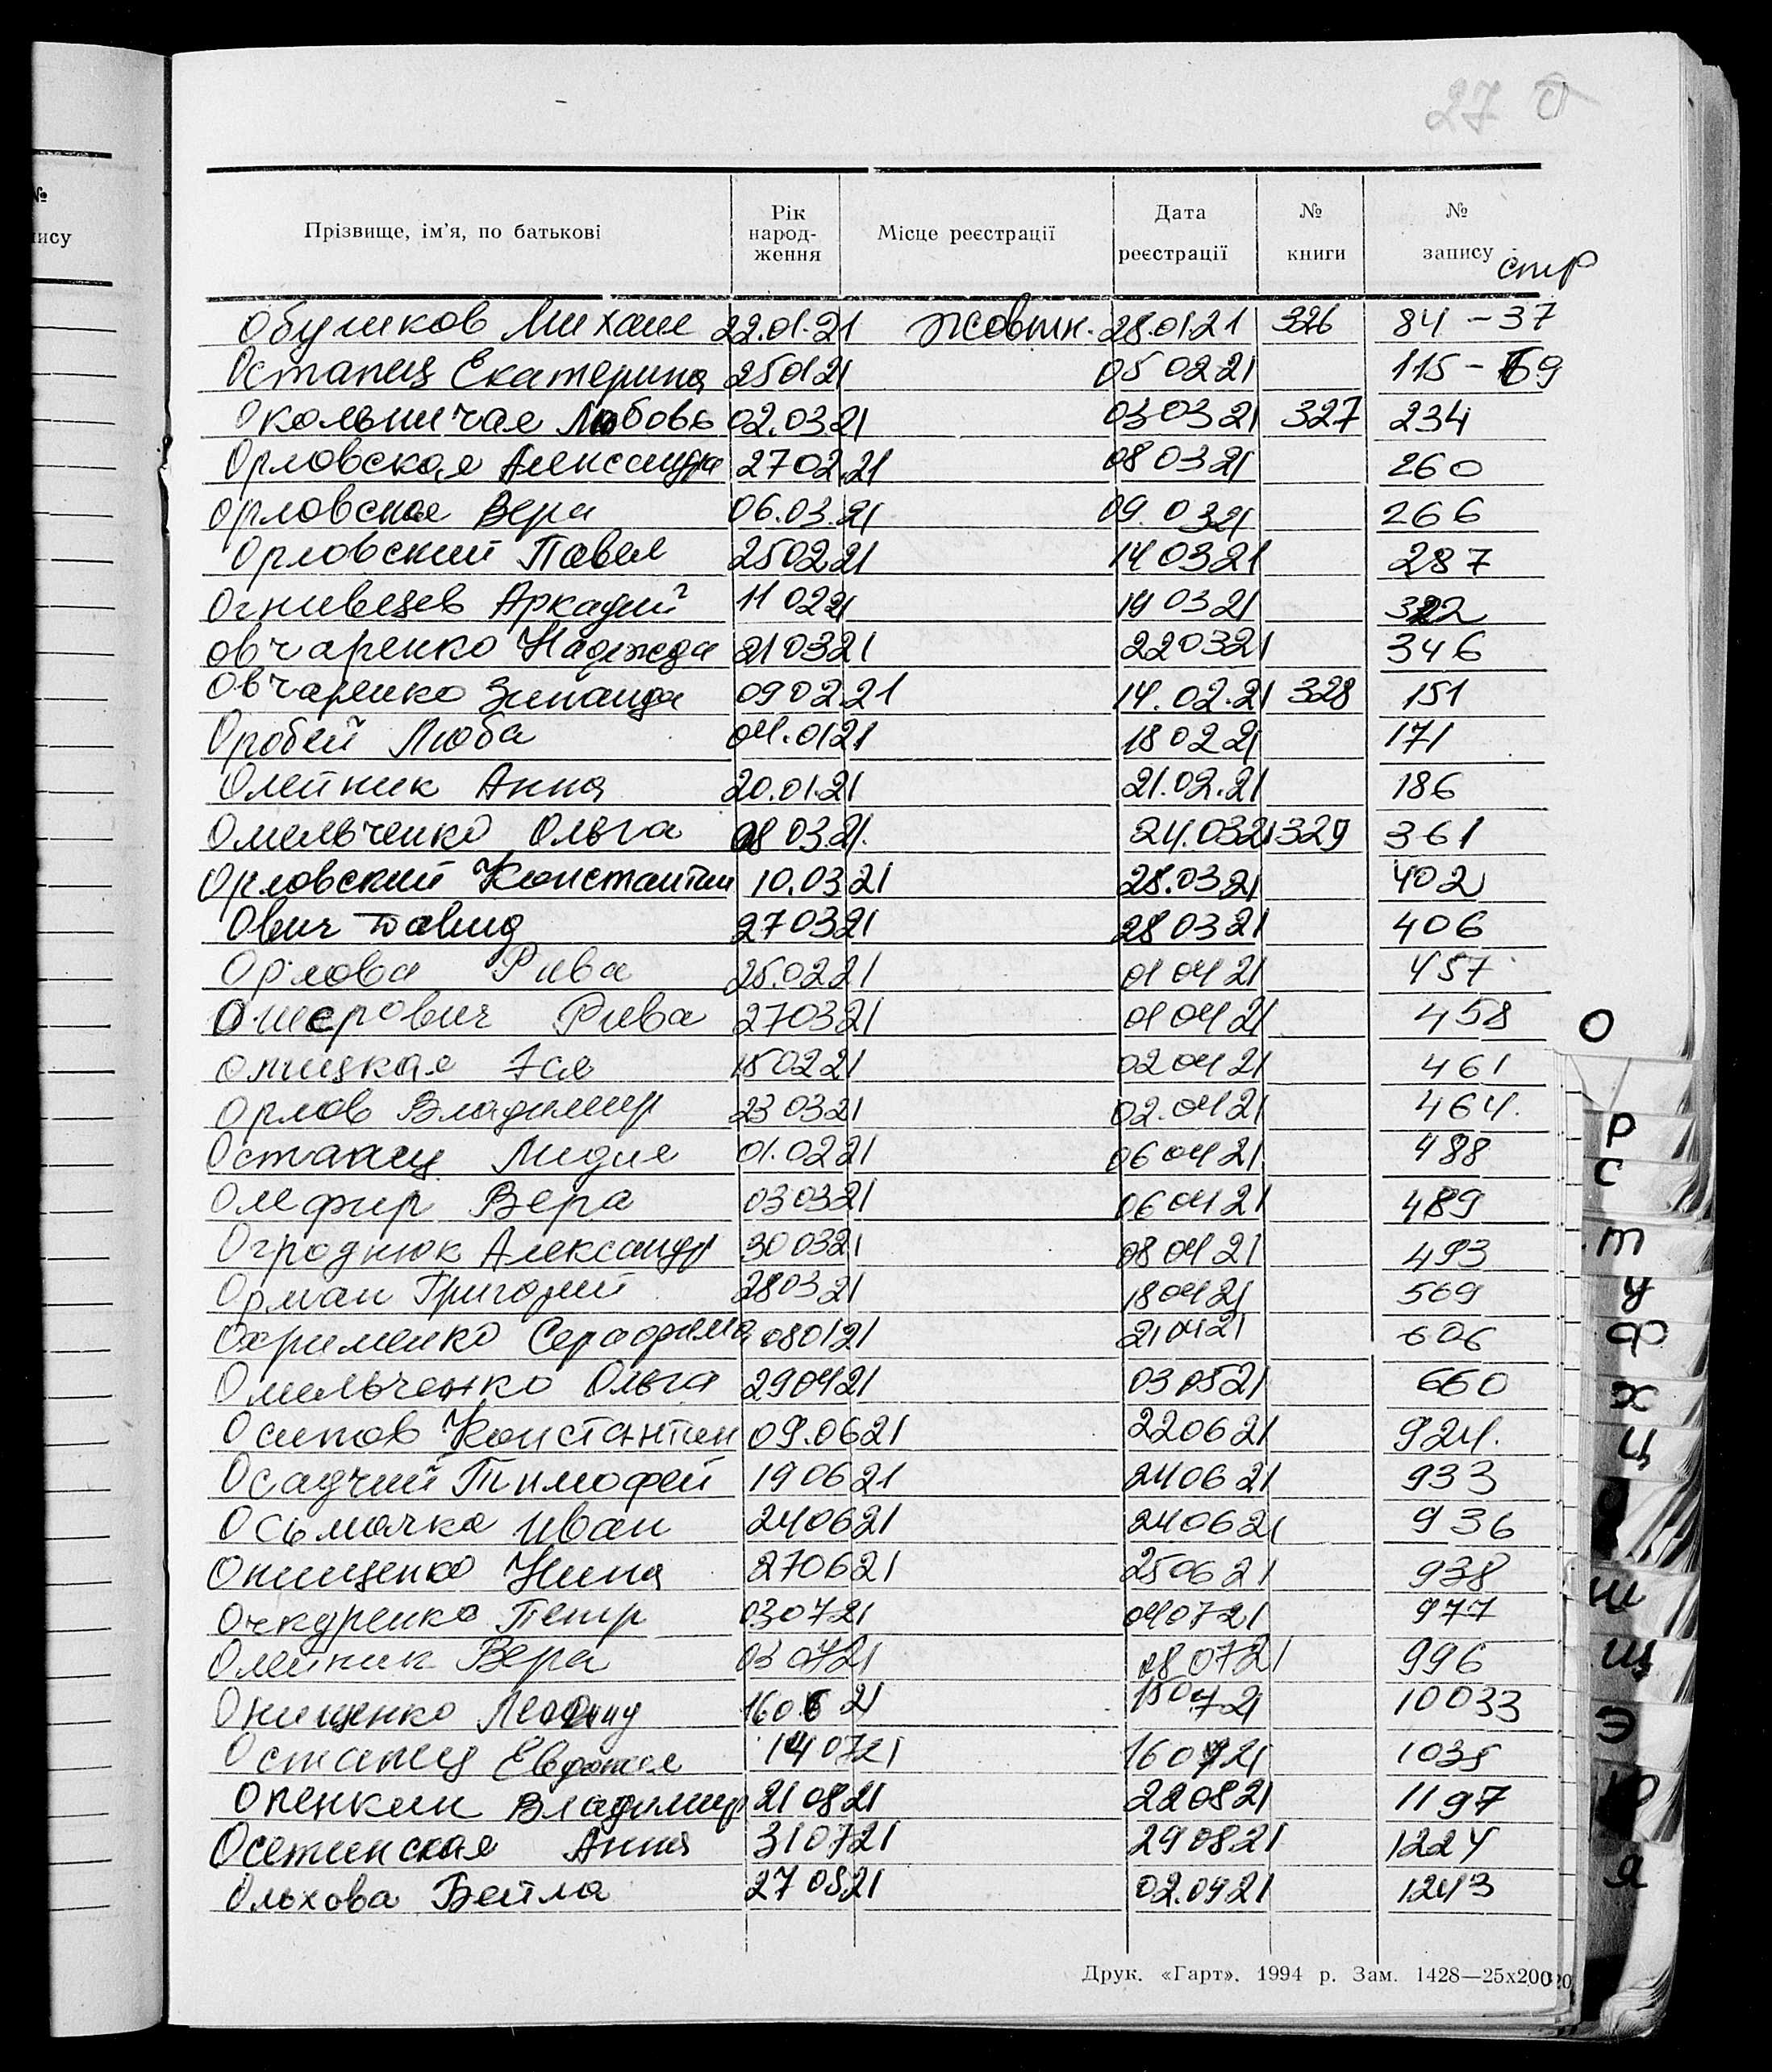 27 О
№
пису
Прізвище, ім'я, по батькові Рік народ-ження Місце реєстрації Дата реєстрації № книги № запису стр
Обушков Михаил 22.01.21 Жовтн. 28.01.21 326 84 – 37
Остапец Екатерина 250121 050221 115 – 69
Окольничая Любовь 02.03.21 030321 327 234
Орловская Александра 2702.21 080321 260
Орловская Вера 06.03.21 09.0321 266
Орловский Павел 250221 140321 287
Огнивецев Аркадий 110221 190321 322
Овчаренко Надежда 210321 220321 346
Овчаренко Зинаида 090221 14.02.21 328 151
Оробей Люба 04.0121 180221 171
Олейник Анна 20.01.21 21.02.21 186
Омельченко Ольга 08 03.21. 24.0321 329 361
Орловский Константин 10.0321 28.0321 402
Ович Давид 270321 280321 406
Орлова Рива 25.0221 010421 457
Ошерович Рива 270321 010421 458
Опицкая 150221 020421 461
Орлов Владимир 230321 02.0421 464.
Остапец Лидия 01.0221 060421 488
Олефир Вера 030321 060421 489
Огроднюк Александр 300321 080421 493
Орман Григорий 280321 180421 569
Охрименко Серафима 080121 210421 606
Омельченко Ольга 290421 030521 660
Осипов Константин 09.0621 220621 924.
Осадчий Тимофей 190621 240621 933
Осьмачко Иван 240621 240621 936
Онищенко Нина 270621 250621 938
Очкуренко Петр 030721 040721 977
Олейник Вера 030721 080721 996
Онищенко Леонид 160621 150721 10033
Остапец Евдокия 140721 160721 1035
Опенкин Владимир 210821 220821 1197
Осетинская Анна 310721 290821 1224
Ольхова Бейла 270821 02.0921 1243
Друк. «Гарт». 1994 р. Зам. 1428—25х200
О
Р
С
Т
У
Ф
Х
Ц
Ш
Щ
Э
Ю
Я